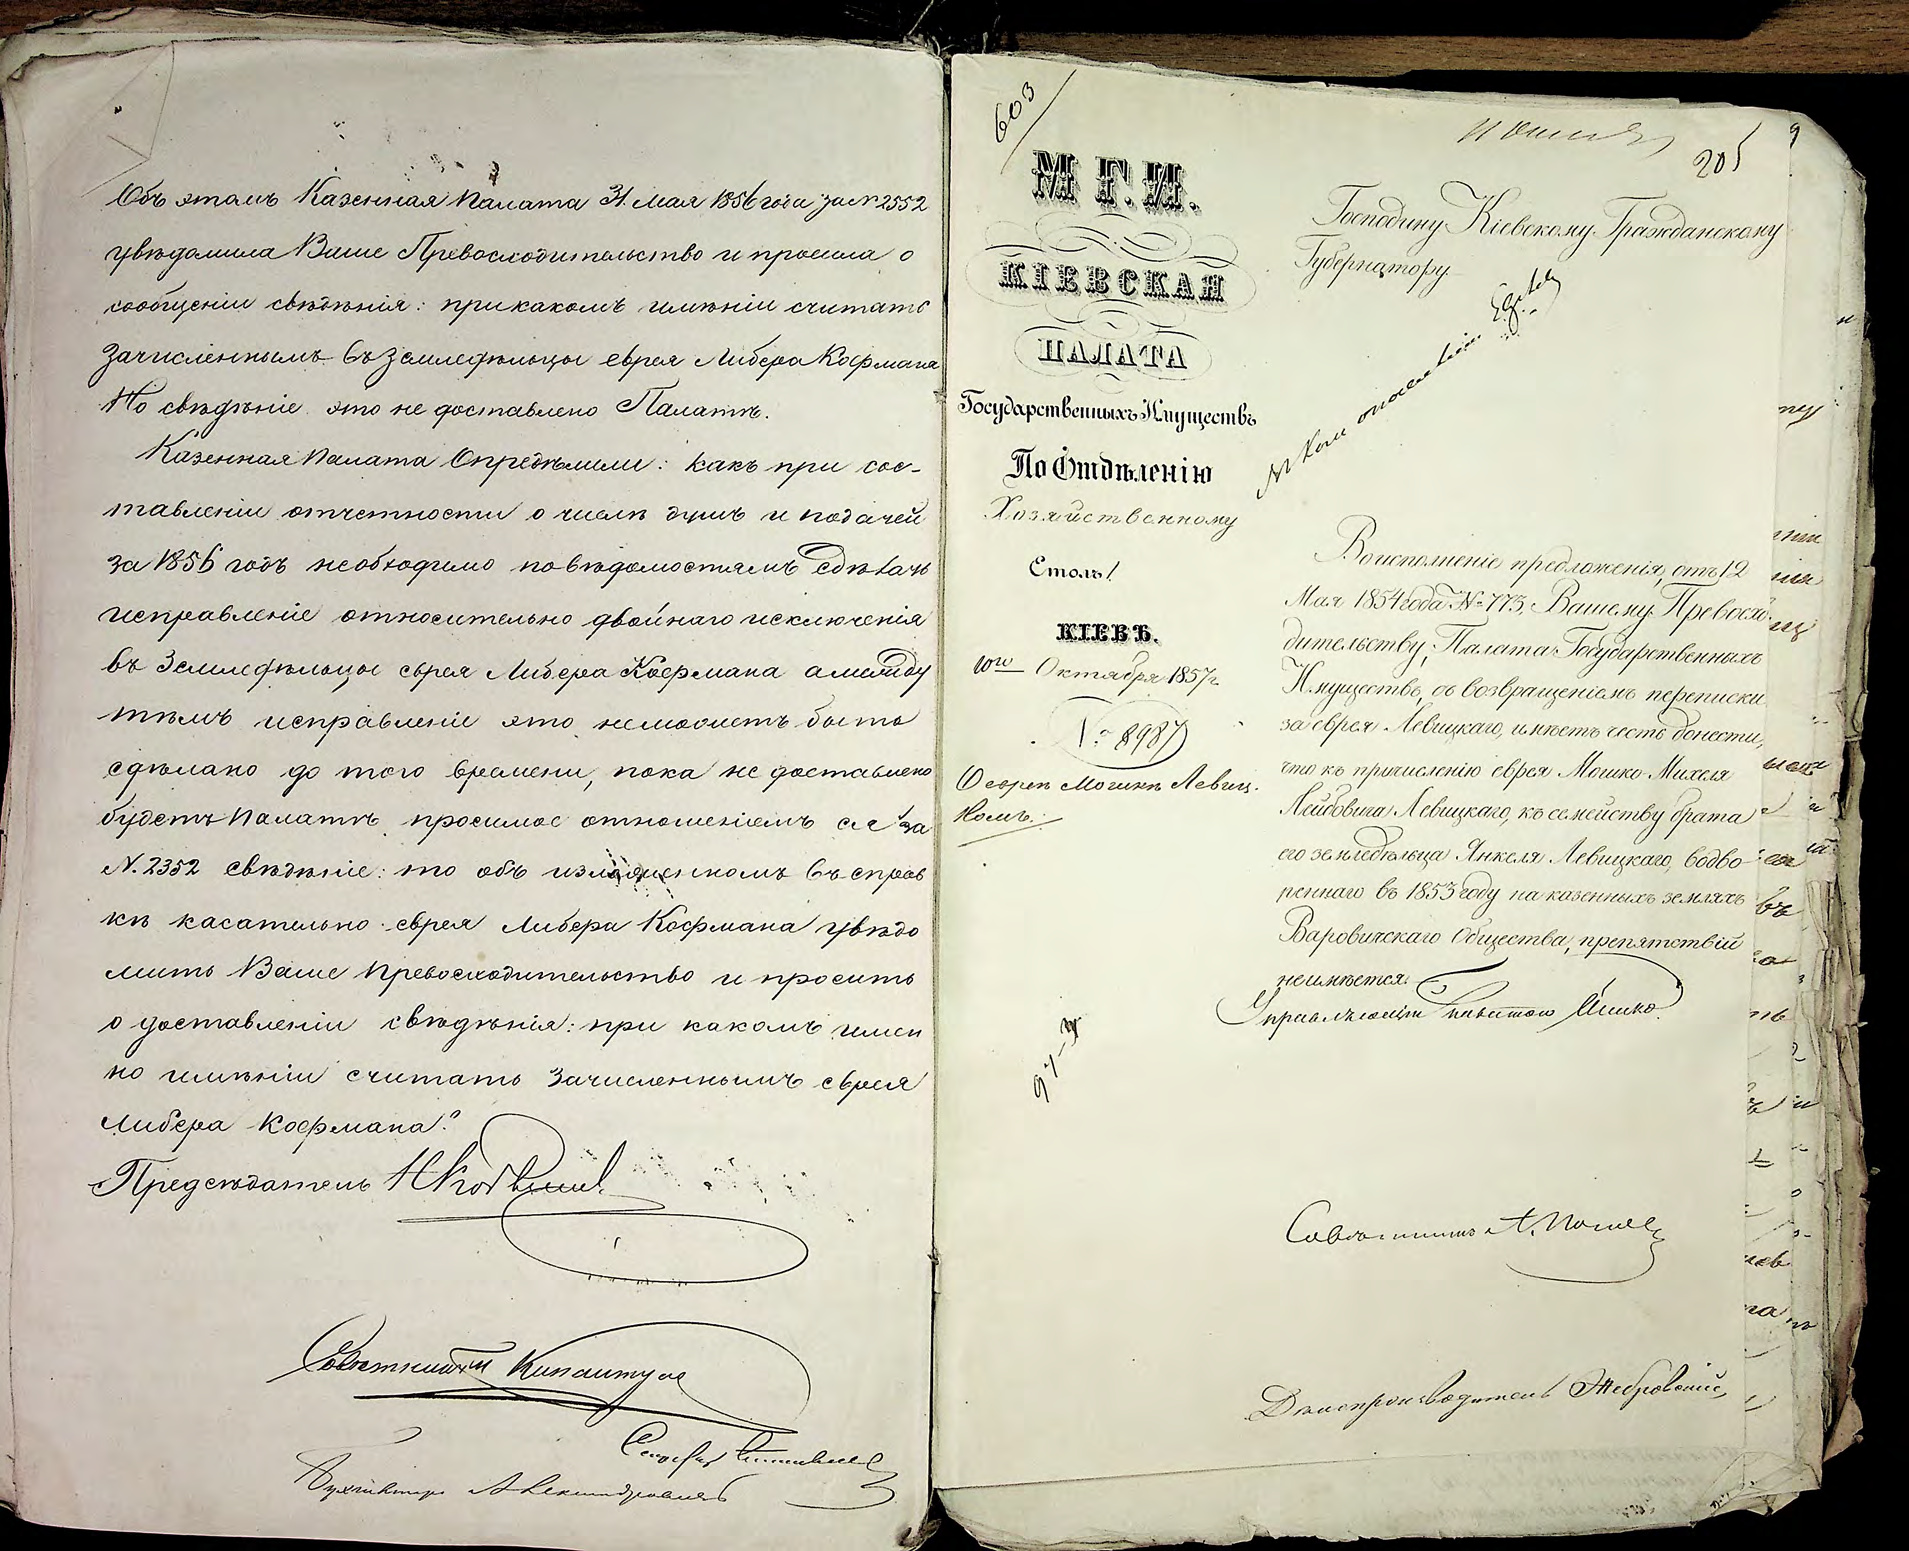 Объ этомъ Казенная Палата 31. мая 1856 года за № 2552
увѣдомила Ваше Превосходительство и просила о
сообщеніи свѣдѣнія: при какомъ имѣніи считать
зачисленнымъ въ земледѣльцы еврея Либера Кофмана
Но свѣдѣніе это не доставлено Палатѣ.
Казенная Палата Опредѣлили: какъ при сос-
тавленіи отчетности о числѣ душъ и податей
за 1856 годъ необходимо по вѣдомостямъ сдѣлать
исправленіе относительно двойнаго исключенія
въ Земледѣльцы еврея Либера Кофмана а между
тѣмъ исправленіе это неможетъ быть
сдѣлано до того времени, пока не доставлено
будетъ Палатѣ просимое отношеніемъ ея за
N. 2352 свѣдѣніе: то объ изложенномъ въ справ
кѣ касательно еврея Либера Кофмана увѣдо
мить Ваше Превосходительство и просить
о доставленіи свѣдѣнія: при какомъ имен
но имѣніи считать зачисленнымъ еврея
Либера Кофмана."
Предсѣдатель
Совѣтникъ
Бухгалтеръ
603
205
М Г. И.
КІЕВСКАЯ
ПАЛАТА
Государственныхъ Имуществъ
По Отдѣленію
Хозяйственному
Столъ 1
КІЕВЪ.
10го Октября 1857 г.
№ 8987
О евреѣ Мошкѣ Левиц-
комъ.
97-
Господину Кіевскому Гражданскому
Губернатору
Во исполненіе предложенія, отъ 12
Мая 1854 года № 775, Вашему Превосхо-
дительству, Палата Государственныхъ
Имуществъ, съ возвращеніемъ переписки
за еврея Левицкаго, имѣетъ честь донести,
что къ причисленію еврея Мошко Михеля
Лейбовича Левицкаго, къ семейству брата
его земледѣльца Янкеля Левицкаго, водво-
реннаго въ 1853 году на казенныхъ земляхъ
Варовичскаго Общества, препятствій
неимѣется.
Управляющій Палатою
Совѣтникъ А.
Дѣлопроизводитель Жебровскій